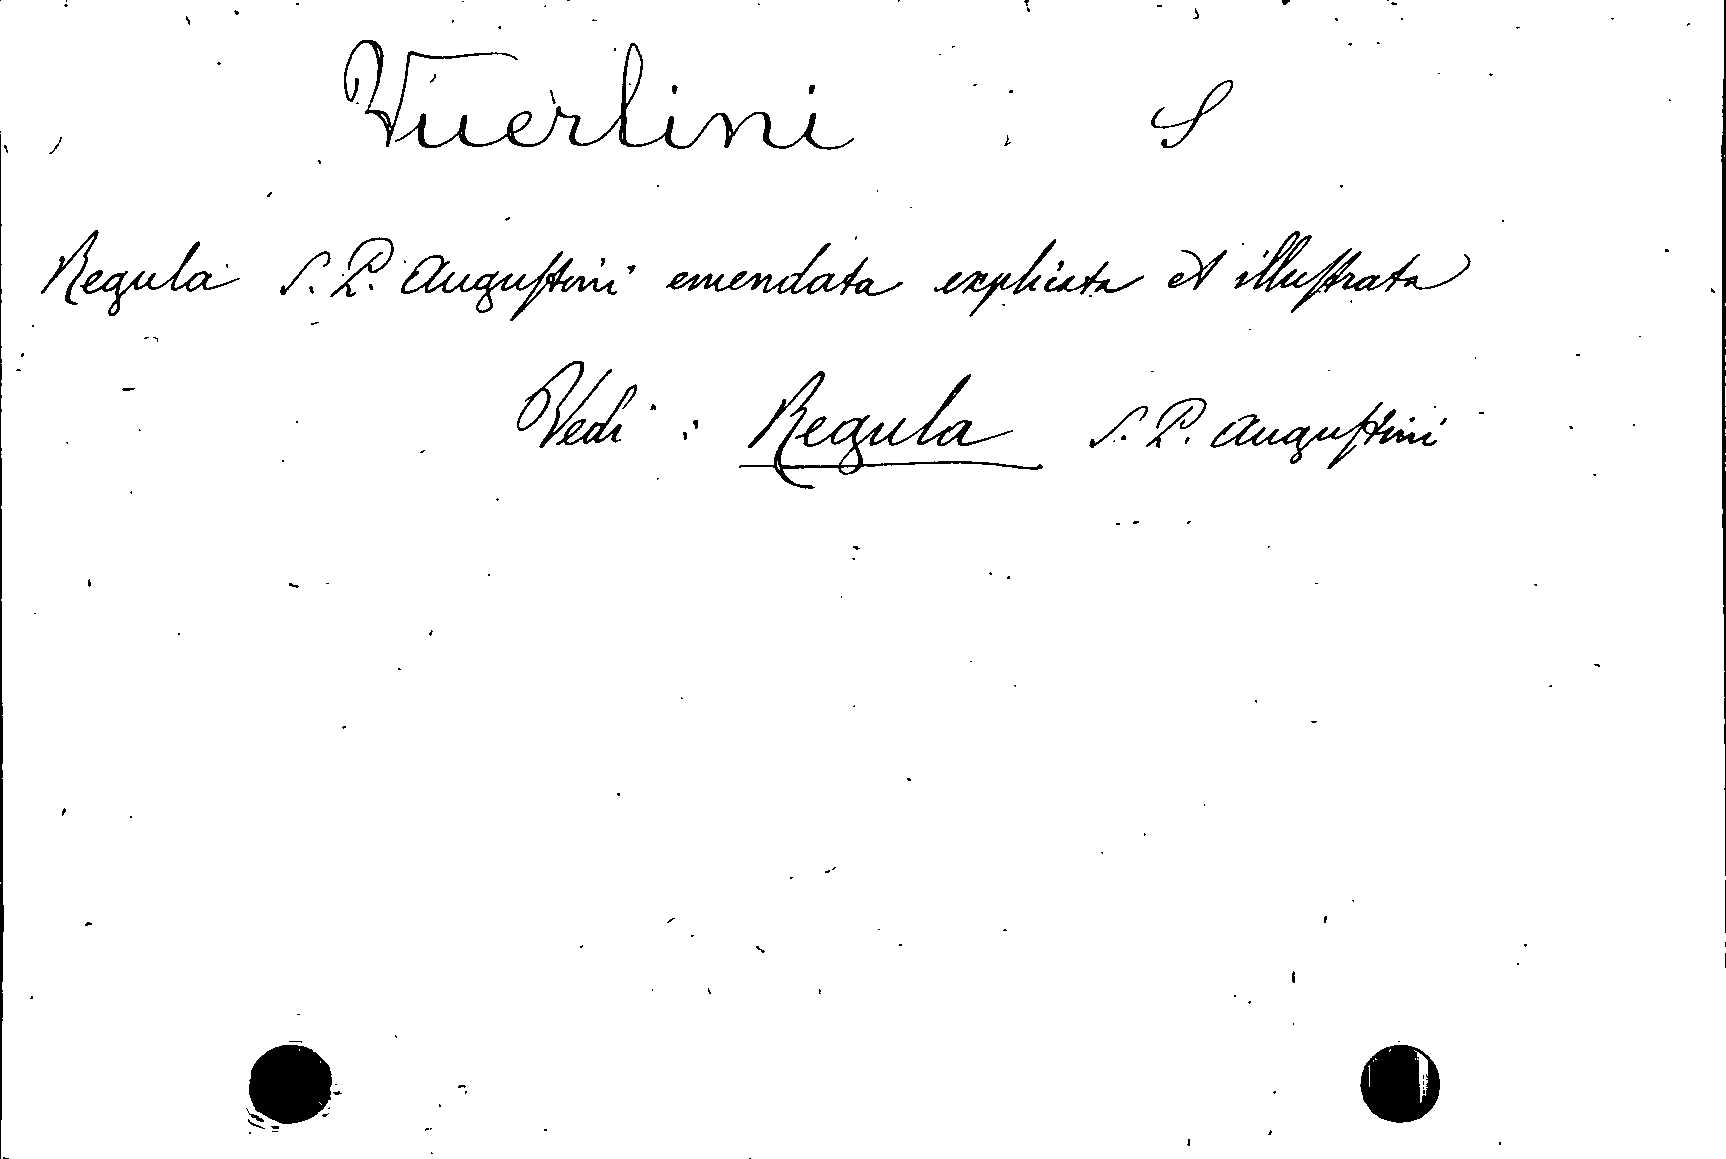 Vuerlini S
Regula S. P. Augustini emendata explicata et illustrata
Vedi : Regula S. P. Augustini